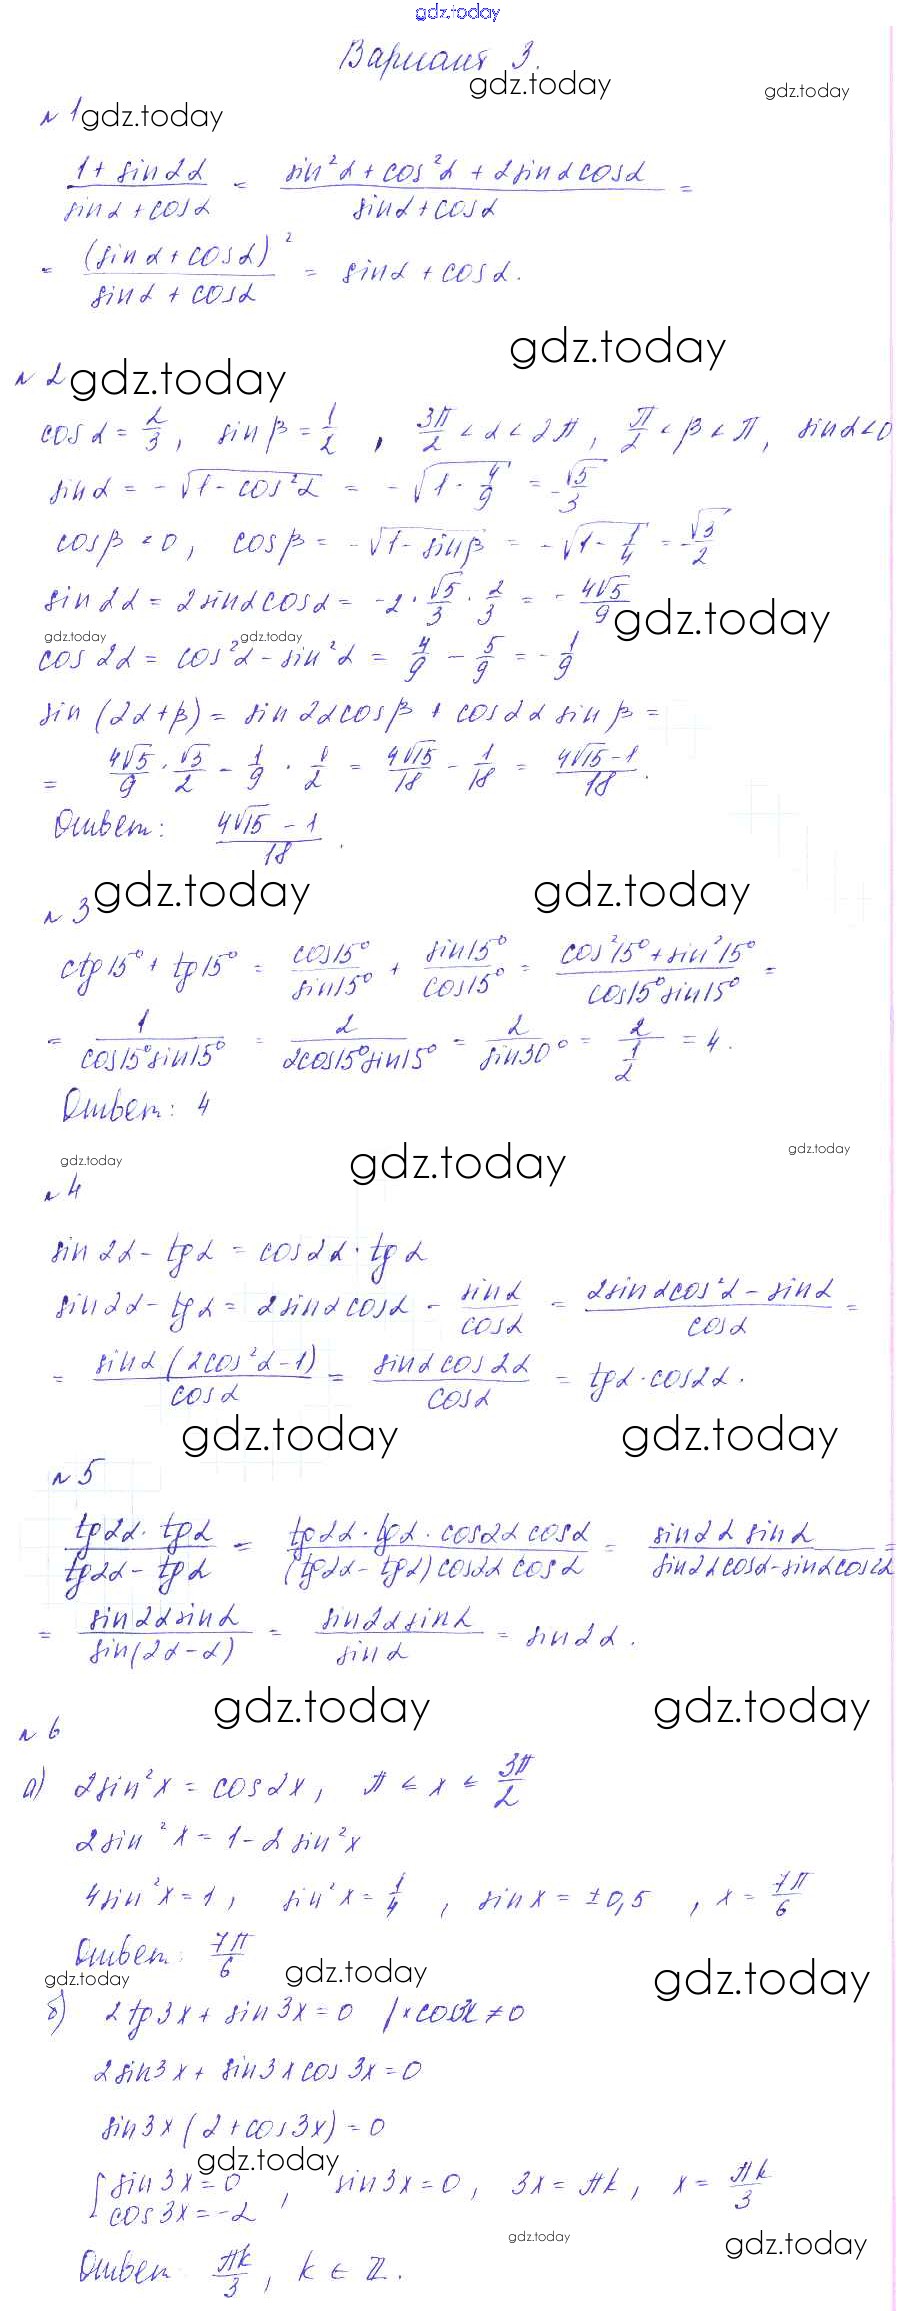 gdz.today
Вариант 3.
gdz.today gdz.today
№ 1 gdz.today
(1 + sin2α)/(sinα + cosα) = (sin²α + cos²α + 2sinαcosα)/(sinα + cosα) =
= (sinα + cosα)²/(sinα + cosα) = sinα + cosα.
gdz.today
№ 2 gdz.today
cosα = 2/3, sinβ = 1/2, 3π/2 < α < 2π, π/2 < β < π, sinα < 0
sinα = -√(1 - cos²α) = -√(1 - 4/9) = -√5/3
cosβ < 0, cosβ = -√(1 - sinβ) = -√(1 - 1/4) = -√3/2
sin2α = 2sinαcosα = -2 · √5/3 · 2/3 = -4√5/9
gdz.today
gdz.today gdz.today
cos2α = cos²α - sin²α = 4/9 - 5/9 = -1/9
sin(2α+β) = sin2αcosβ + cos2αsinβ =
= 4√5/9 · √3/2 - 1/9 · 1/2 = 4√15/18 - 1/18 = (4√15 - 1)/18.
Ответ: (4√15 - 1)/18.
gdz.today gdz.today
№ 3
ctg15° + tg15° = cos15°/sin15° + sin15°/cos15° = (cos²15° + sin²15°)/(cos15°sin15°) =
= 1/(cos15°sin15°) = 2/(2cos15°sin15°) = 2/sin30° = 2/(1/2) = 4.
Ответ: 4
gdz.today gdz.today gdz.today
№ 4
sin2α - tgα = cos2α · tgα
sin2α - tgα = 2sinαcosα - sinα/cosα = (2sinαcos²α - sinα)/cosα =
= sinα(2cos²α - 1)/cosα = sinαcos2α/cosα = tgα · cos2α.
gdz.today gdz.today
№ 5
(tg2α · tgα)/(tg2α - tgα) = (tg2α · tgα · cos2αcosα)/((tg2α - tgα)cos2αcosα) = (sin2αsinα)/(sin2αcosα - sinαcos2α) =
= sin2αsinα/sin(2α - α) = sin2αsinα/sinα = sin2α.
gdz.today gdz.today
№ 6
а) 2sin²x = cos2x, π < x < 3π/2
2sin²x = 1 - 2sin²x
4sin²x = 1, sin²x = 1/4, sinx = ±0,5, x = 7π/6
Ответ: 7π/6
gdz.today gdz.today gdz.today
б) 2tg3x + sin3x = 0 |× cos3x ≠ 0
2sin3x + sin3xcos3x = 0
sin3x(2 + cos3x) = 0
gdz.today
[sin3x = 0, sin3x = 0, 3x = πk, x = πk/3
cos3x = -2
gdz.today gdz.today
Ответ: πk/3, k ∈ Z.